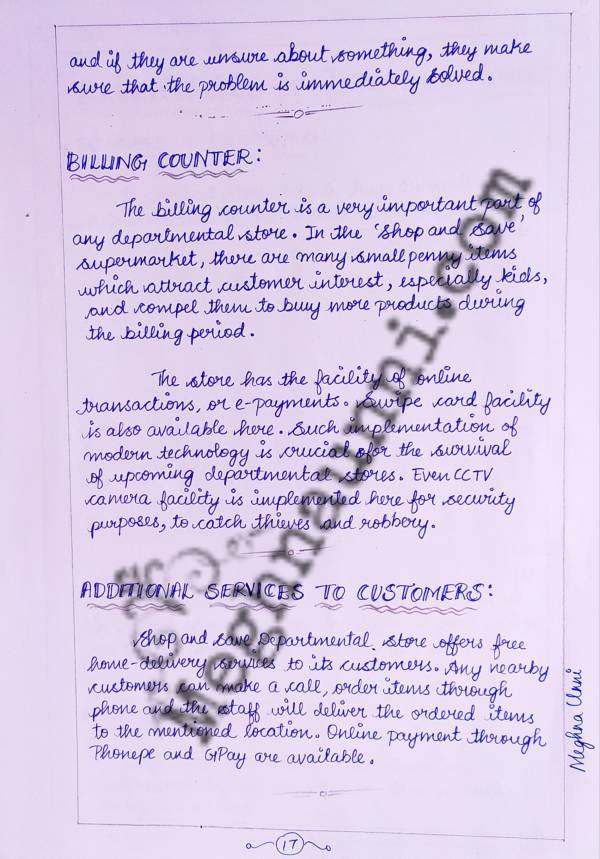 and if they are unsure about something, they make
sure that the problem is immediately solved.
BILLING COUNTER:
The billing counter is a very important part of
any departmental store. In the 'Shop and Save'
supermarket, there are many small penny items
which attract customer interest, especially kids,
and compel them to buy more products during
the billing period.
The store has the facility of online
transactions, or e-payments. Swipe card facility
is also available here. Such implementation of
modern technology is crucial for the survival
of upcoming departmental stores. Even CCTV
camera facility is implemented here for security
purposes, to catch thieves and robbery.
ADDITIONAL SERVICES TO CUSTOMERS:
Shop and Save Departmental Store offers free
home-delivery services to its customers. Any nearby
customers can make a call, order items through
phone and the staff will deliver the ordered items
to the mentioned location. Online payment through
Phonepe and GPay are available.
Meghna Unni
17
Meghnaunni.com